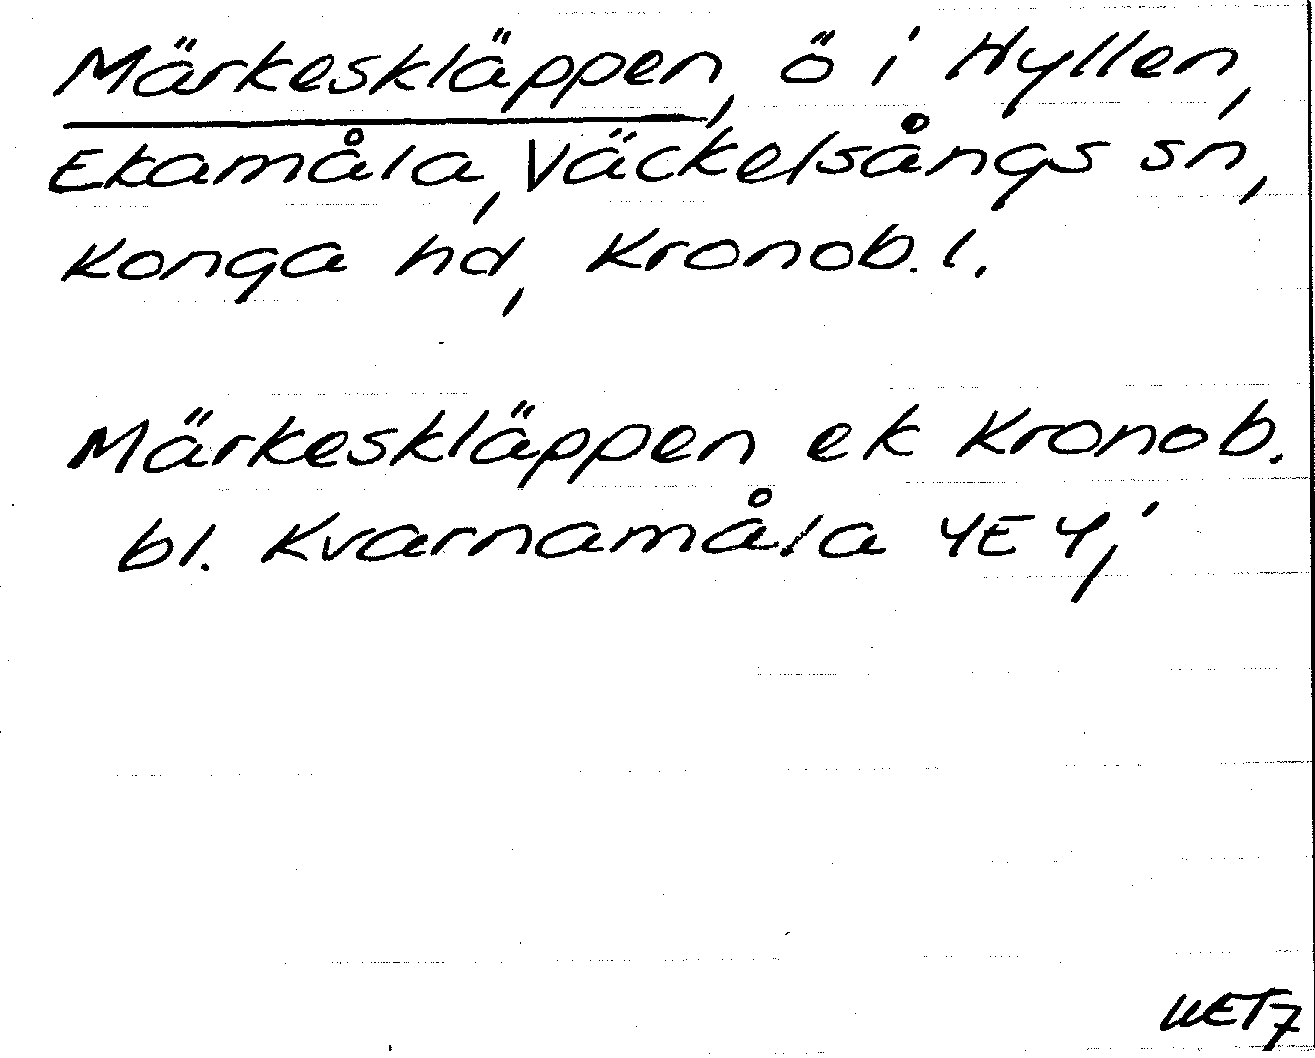 Märkeskläppen, ö i Hyllen,
Ekamåla, Väckelsångs sn,
Konga hd, Kronob. l.
Märkeskläppen ek Kronob.
bl. Kvarnamåla 4E4,i